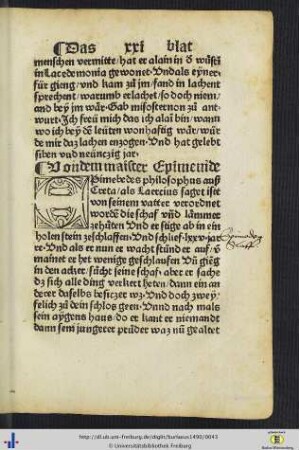 Das xxi blat
menschen vermitte/hat er alain in d̕ wůstū
in Lacedemonia gewonet. Vnd als eyner
für gieng/vnd kam zů jm/fand in lachent
sprechent/warumb erlachet/so doch niem
and bey jm wår. Gab misosternon zů ant
wurt. Ich freü mich das ich alaī bin/wann
wo ich bey dē leüten wonhafftig wår/wür
de mir das lachen enzogen. Vnd hat gelebt
siben vnd neüntzig jar.
Von dem maister Epimenide
Epimebdes philosophus auß
Creta/als Laercius saget ist
von seinem vatter verordnet
wordē die schaf vn̄d lämmer
zehütten Vnd er stige ab in ein
holen stein ze schlaffen. Vnd schlief. lxxv jar
Vnd als er nun er wacht stünd er auf/v̄
mainet er het wenige geschlaufen Vn̄ gieg
in den acker/sücht seine schaf/aber er sache
dz sich alle ding verkert heten/dann ein an
derer daselbs besiczer wz. Vnd doch zwey
felich zů dem schlos geen. Vnnd nach mals
sein aygens haus/do er kant er niemandt
dann sein jungerer průder waz nū gealtet
http://dl.ub.uni-freiburg.de/diglit/burlaeus1490/0043
© Universitätsbibliothek Freiburg